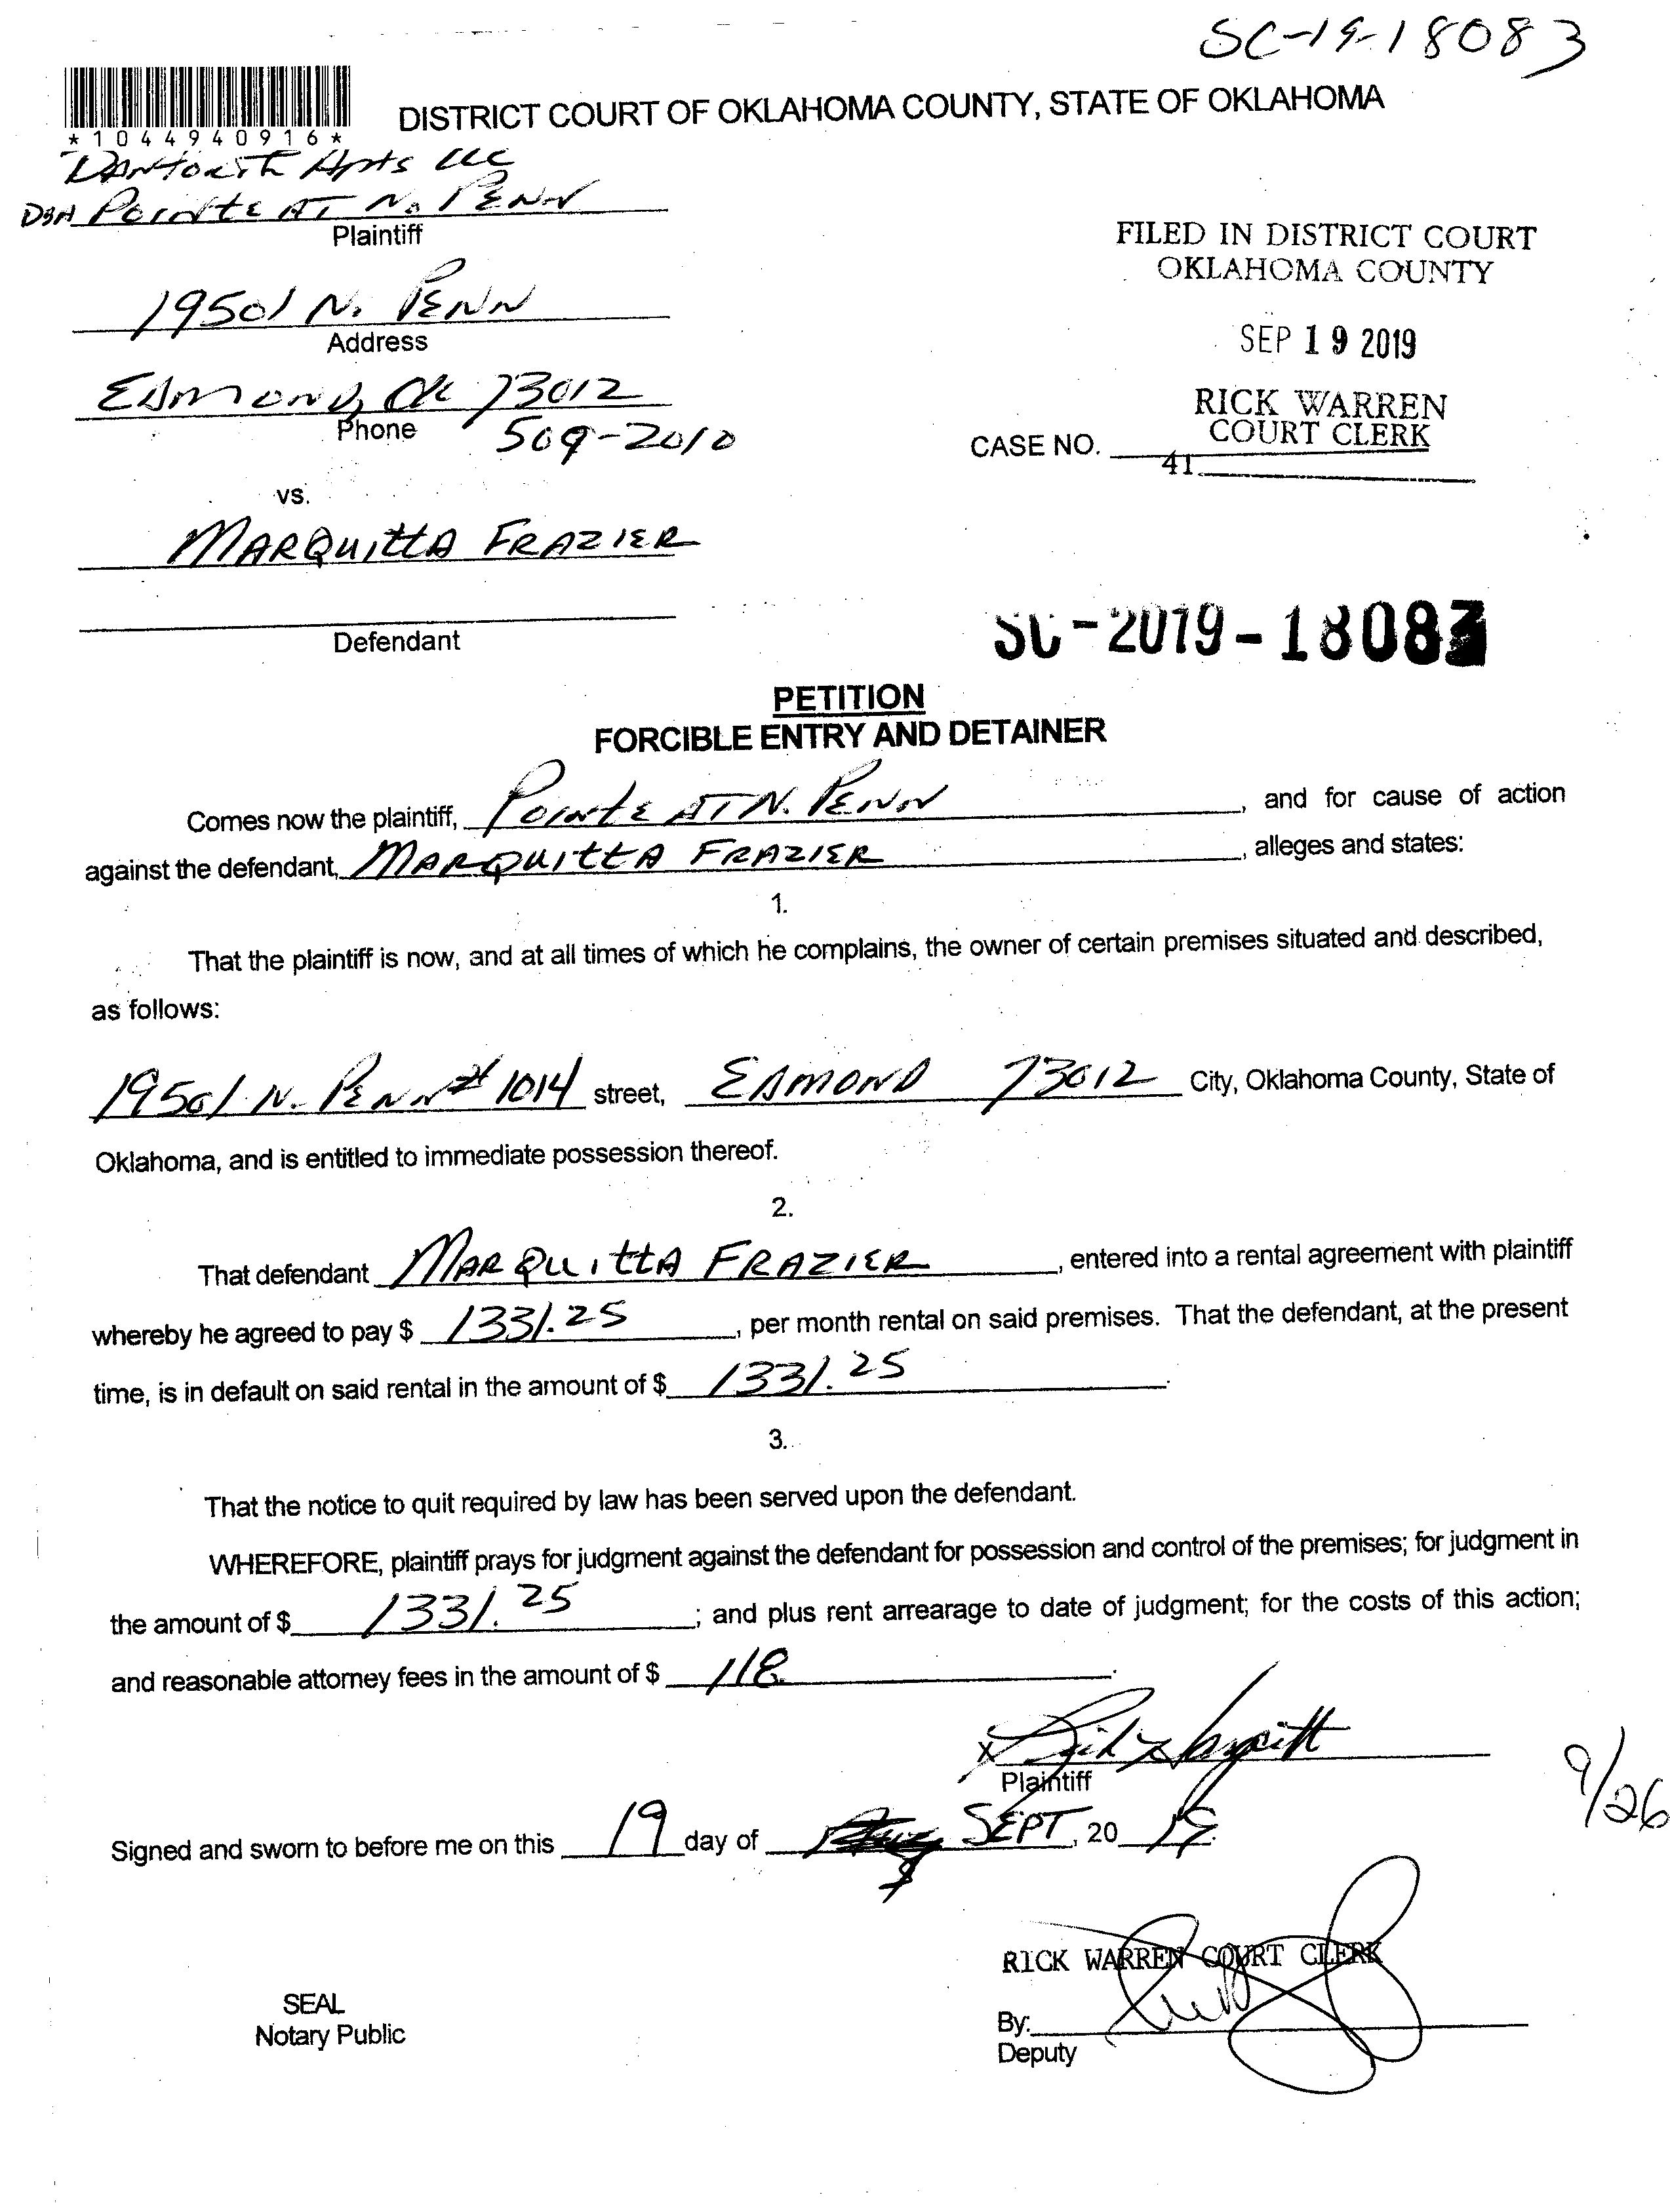 SC-19-18083
*1044940916*
DISTRICT COURT OF OKLAHOMA COUNTY, STATE OF OKLAHOMA
Danforth Apts LLC
DBA Pointe AT N. PENN
Plaintiff
FILED IN DISTRICT COURT
OKLAHOMA COUNTY
19501 N. PENN
Address
SEP 19 2019
EDMOND, OK 73012
Phone 509-2010
RICK WARREN
COURT CLERK
CASE NO.
41
vs.
MARQUITTA FRAZIER
Defendant
SC-2019-18083
PETITION
FORCIBLE ENTRY AND DETAINER
Comes now the plaintiff, POINTE AT N. PENN, and for cause of action
against the defendant, MARQUITTA FRAZIER, alleges and states:
1.
That the plaintiff is now, and at all times of which he complains, the owner of certain premises situated and described,
as follows:
19501 N. PENN # 1014 street, EDMOND 73012 City, Oklahoma County, State of
Oklahoma, and is entitled to immediate possession thereof.
2.
That defendant MARQUITTA FRAZIER, entered into a rental agreement with plaintiff
whereby he agreed to pay $ 1331.25, per month rental on said premises. That the defendant, at the present
time, is in default on said rental in the amount of $ 1331.25.
3.
That the notice to quit required by law has been served upon the defendant.
WHEREFORE, plaintiff prays for judgment against the defendant for possession and control of the premises; for judgment in
the amount of $ 1331.25; and plus rent arrearage to date of judgment; for the costs of this action;
and reasonable attorney fees in the amount of $ 118.
X
Plaintiff
9/26
Signed and sworn to before me on this 19 day of SEPT, 20 19.
RICK WARREN COURT CLERK
SEAL
Notary Public
By:
Deputy